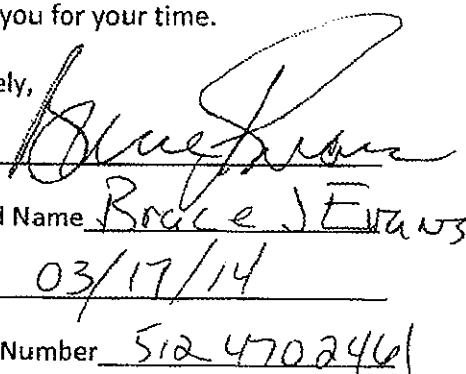 you for your time.
ely,
d Name Bruce J Evans
03/17/14
Number 512 470 2461